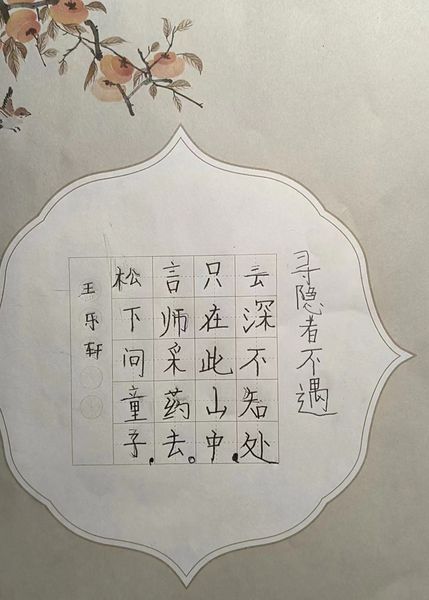 寻隐者不遇
松下问童子，
言师采药去。
只在此山中，
云深不知处
王乐轩